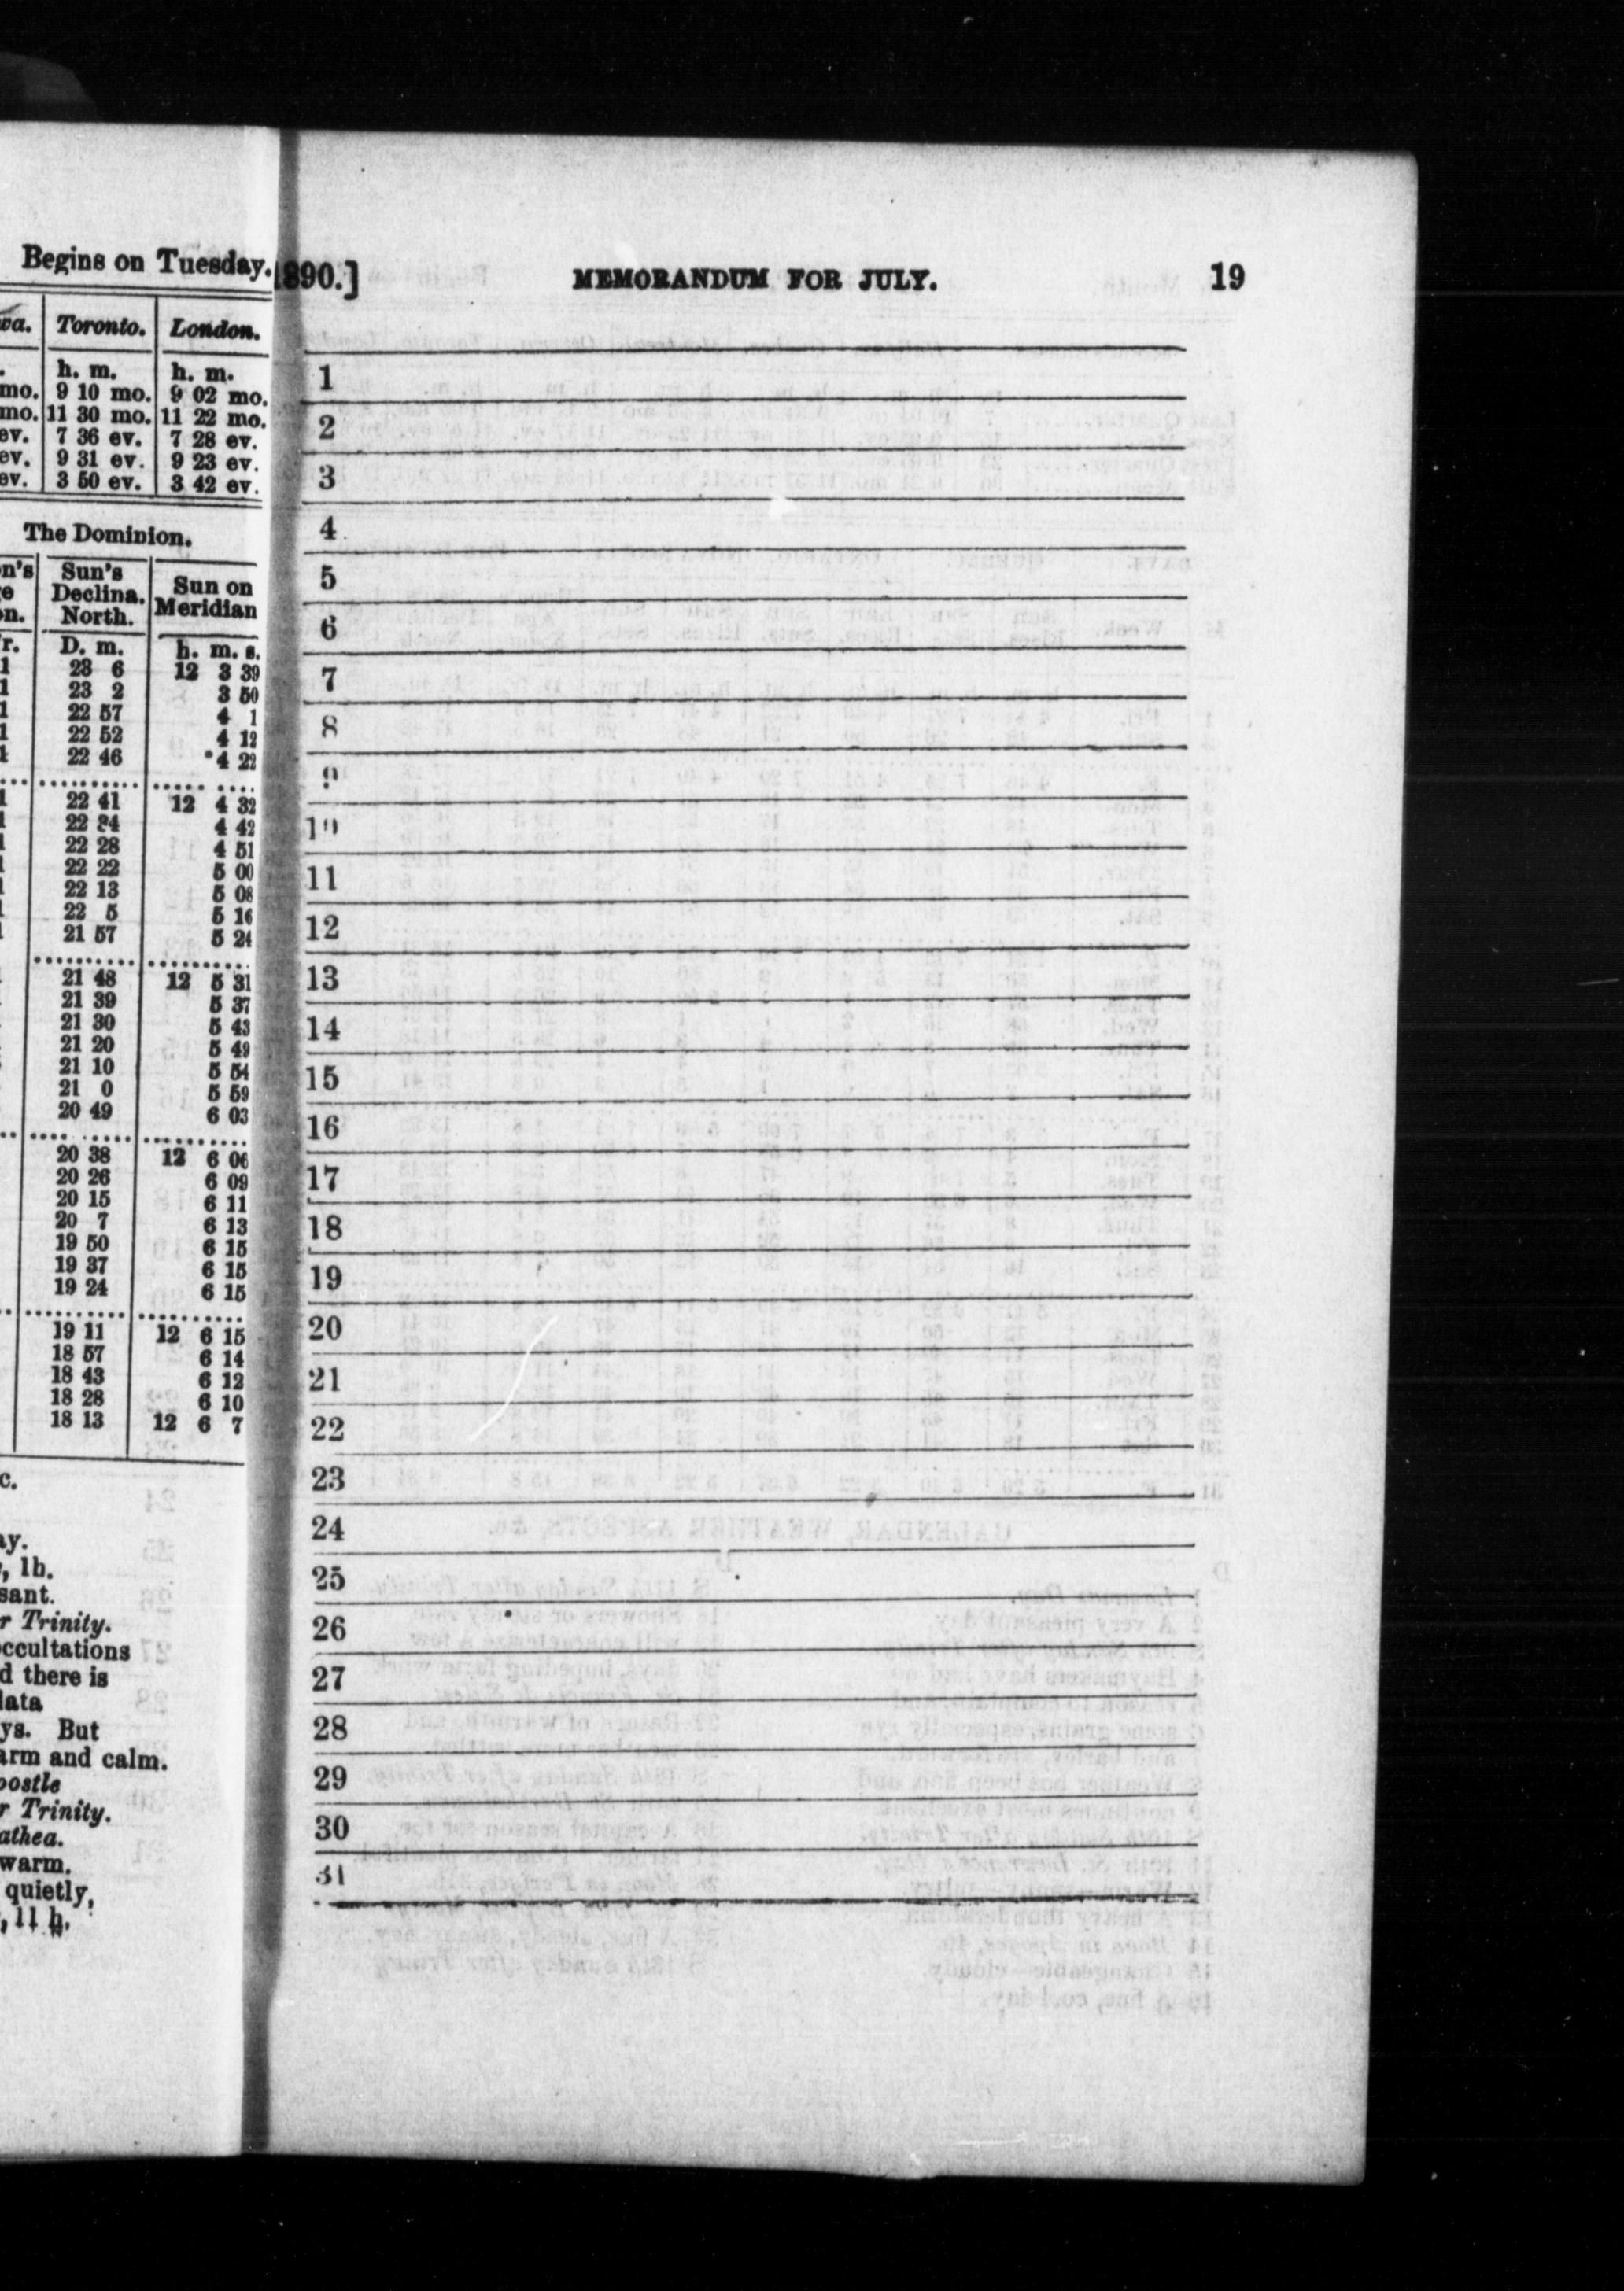 Begins on Tuesday.
Toronto. London.
h. m. h. m.
mo. 9 10 mo. 9 02 mo.
mo. 11 30 mo. 11 22 mo.
ev. 7 36 ev. 7 28 ev.
ev. 9 31 ev. 9 23 ev.
ev. 3 50 ev. 3 42 ev.
The Dominion.
Sun's Declina. North. Sun on Meridian
D. m. h. m. s.
23 6 12 3 39
23 2 3 50
22 57 4 1
22 52 4 12
22 46 4 22
22 41 12 4 32
22 34 4 42
22 28 4 51
22 22 5 00
22 13 5 08
22 5 5 16
21 57 5 24
21 48 12 5 31
21 39 5 37
21 30 5 43
21 20 5 49
21 10 5 54
21 0 5 59
20 49 6 03
20 38 12 6 06
20 26 6 09
20 15 6 11
20 7 6 13
19 50 6 15
19 37 6 15
19 24 6 15
19 11 12 6 15
18 57 6 14
18 43 6 12
18 28 6 10
18 13 12 6 7
c.
ay.
, 1h.
sant.
r Trinity.
occultations
d there is
lata
ys. But
arm and calm.
postle
r Trinity.
athea.
warm.
quietly,
, 11 h.
890.] MEMORANDUM FOR JULY. 19
1
2
3
4
5
6
7
8
9
10
11
12
13
14
15
16
17
18
19
20
21
22
23
24
25
26
27
28
29
30
31